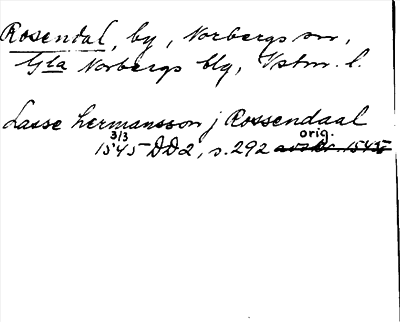 Rosendal, by, Norbergs sn,
Gla Norbergs blg, Vstm. l.
Lasse Hermansson j Rossendaal
3/3 orig.
1545 DD2, s. 292 avskr. 1545